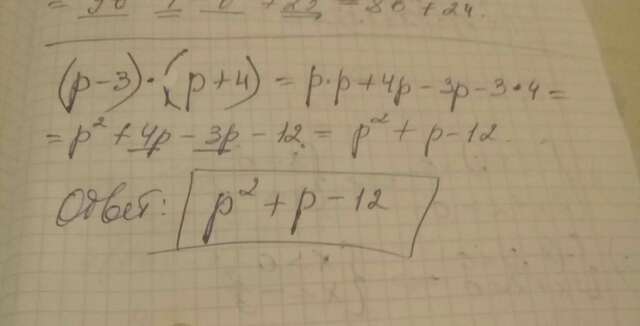 (p-3)·(p+4) = p·p+4p-3p-3·4=
= p²+4p-3p-12= p²+p-12.
Ответ: p²+p-12